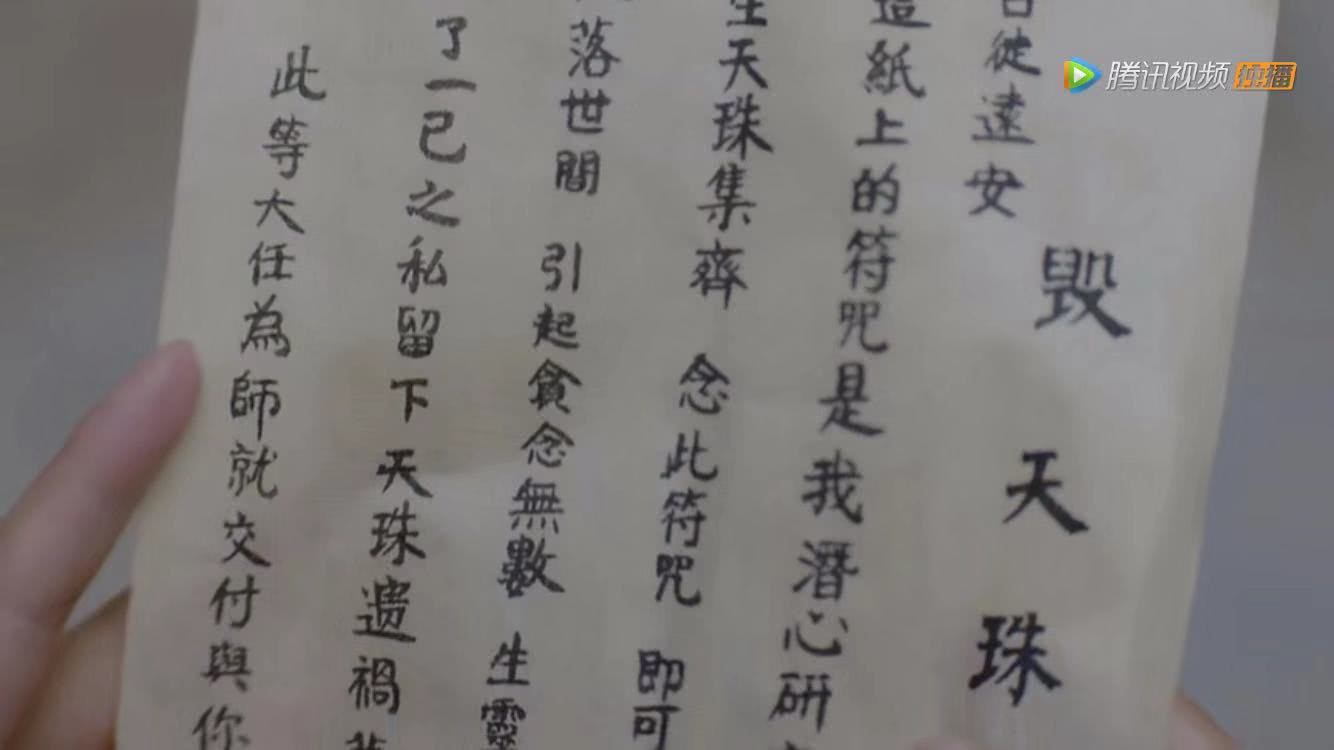 腾讯视频 独播
毁天珠
徒遠安
造紙上的符咒是我潛心研
天珠集齊 念此符咒 即可
落世間 引起貪念無數 生靈
了一已之私留下天珠遗禍
此等大任為師就交付與你